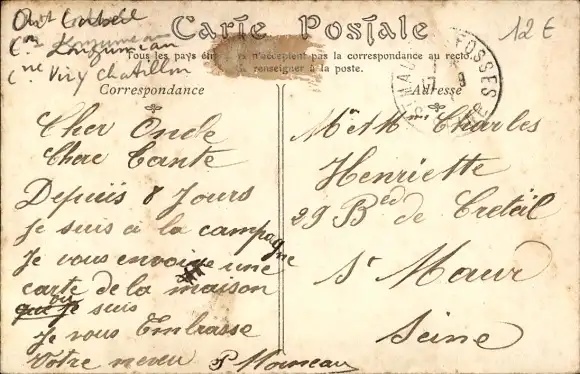 Arrt Corbeil
Con Longjumeau
Cne Viry Chatillon
12 €
Carte Postale
Tous les pays étrangers n'acceptent pas la correspondance au recto.
renseigner à la poste.
FOSSES
17 9
Correspondance
Cher Oncle
Chere Tante
Depuiis 8 Jours
je suis à la campagne
Je vous envoie une
carte de la maison
que je ou suis
Je vous Embrasse
Votre neveu P
Adresse
Mr et Mme Charles
Henriette
29 Bed de Creteil
St Maur
Seine